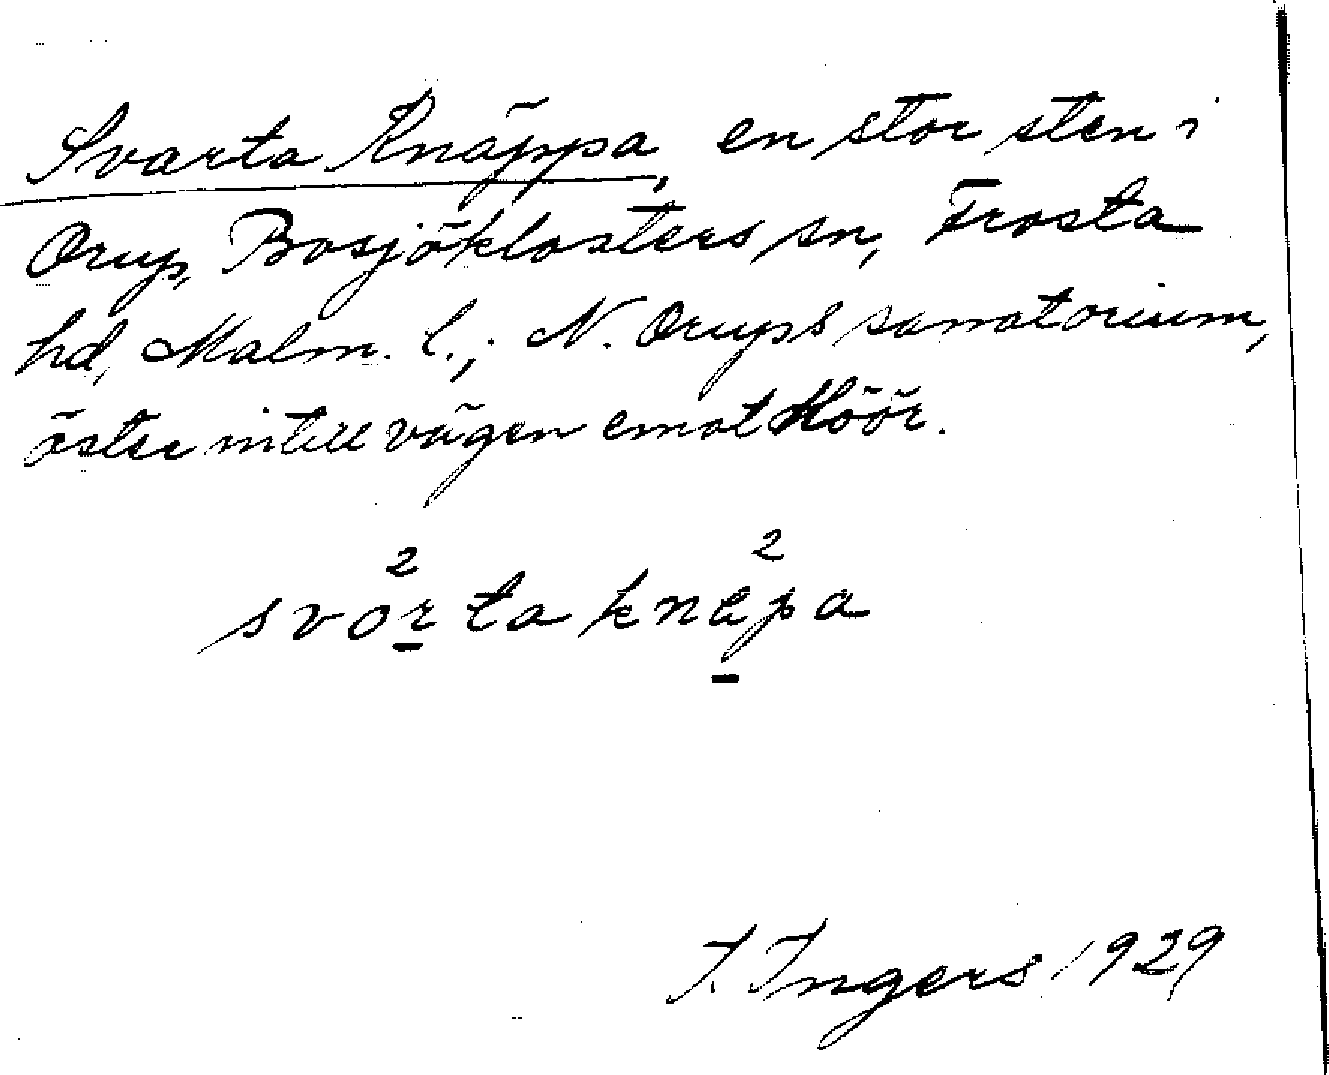 Svarta Knäppa, en stor sten i
Orup, Bosjöklosters sn, Frosta
hd, Malm. l.; N. Orups sanatorium,
öster intill vägen emot Höör.
2 2
svorta knäpa
I. Ingers 1929